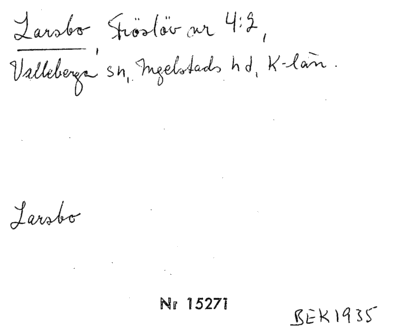 Larsbo, Fröslöv nr 4:2,
Valleberga sn, Ingelstads hd, K-län.
Larsbo
Nr 15271
BEK1935